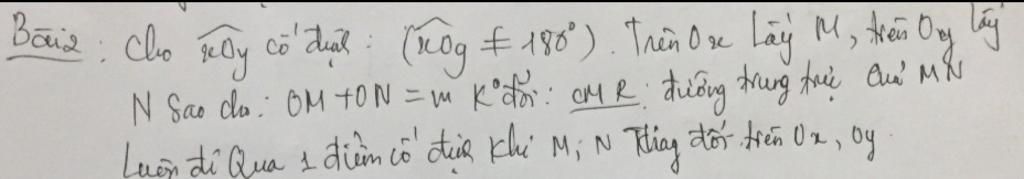 Bài 2: Cho xOy cố định: (xOy ≠ 180°). Trên Ox Lấy M, trên Oy lấy
N Sao cho: OM + ON = m K° đổi: CMR: đường trung trực của MN
Luôn đi Qua 1 điểm cố định khi M, N Thay đổi trên Ox, Oy.